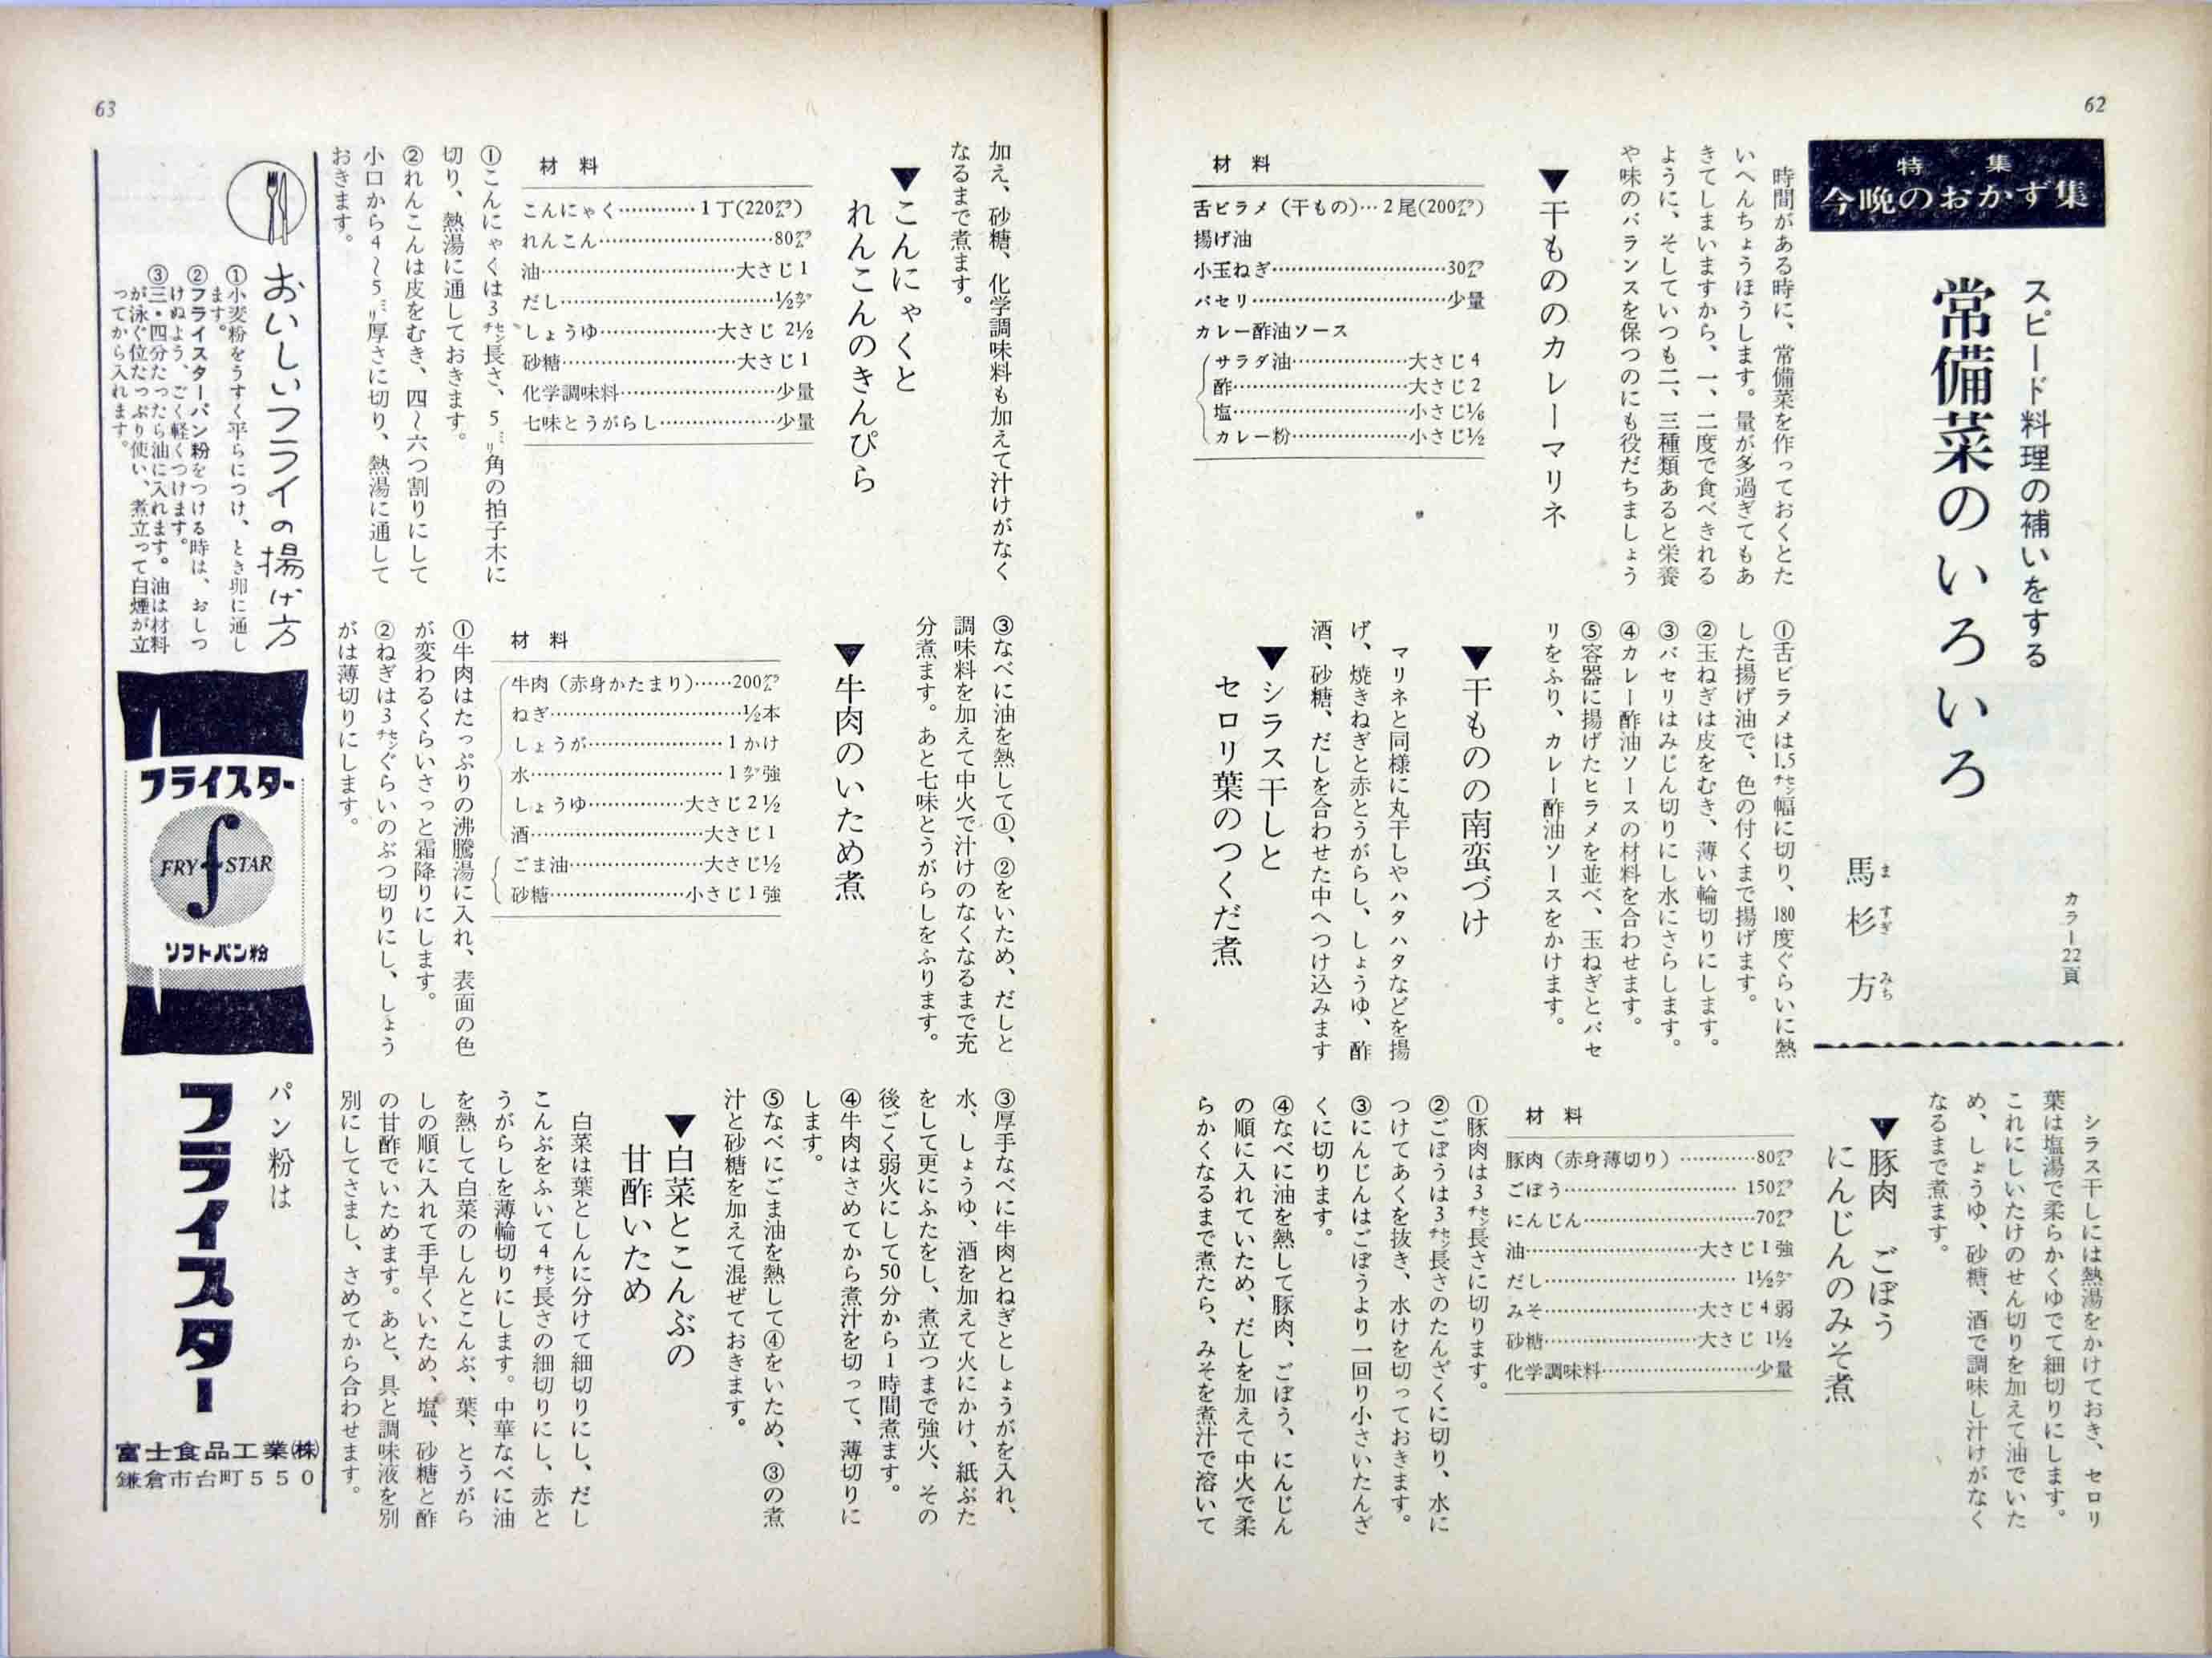 62
特集
今晩のおかず集
スピード料理の補いをする
常備菜のいろいろ
カラー22頁
馬杉 方
ま すぎ みち
時間がある時に、常備菜を作っておくとた
いへんちょうほうします。量が多過ぎてもあ
きてしまいますから、一、二度で食べきれる
ように、そしていつも二、三種類あると栄養
や味のバランスを保つのにも役だちましょう
▼干もののカレーマリネ
材料
舌ビラメ（干もの）…2尾(200㌘)
揚げ油
小玉ねぎ…………30㌘
パセリ…………少量
カレー酢油ソース
サラダ油…………大さじ4
酢…………大さじ2
塩…………小さじ⅙
カレー粉…………小さじ½
①舌ビラメは1.5㌢幅に切り、180度ぐらいに熱
した揚げ油で、色の付くまで揚げます。
②玉ねぎは皮をむき、薄い輪切りにします。
③パセリはみじん切りにし水にさらします。
④カレー酢油ソースの材料を合わせます。
⑤容器に揚げたヒラメを並べ、玉ねぎとパセ
リをふり、カレー酢油ソースをかけます。
▼干ものの南蛮づけ
マリネと同様に丸干しやハタハタなどを揚
げ、焼きねぎと赤とうがらし、しょうゆ、酢
酒、砂糖、だしを合わせた中へつけ込みます
▼シラス干しと
セロリ葉のつくだ煮
シラス干しには熱湯をかけておき、セロリ
葉は塩湯で柔らかくゆでて細切りにします。
これにしいたけのせん切りを加えて油でいた
め、しょうゆ、砂糖、酒で調味し汁けがなく
なるまで煮ます。
▼豚肉 ごぼう
にんじんのみそ煮
材料
豚肉（赤身薄切り）…………80㌘
ごぼう…………150㌘
にんじん…………70㌘
油…………大さじ1強
だし…………1½㌍
みそ…………大さじ4弱
砂糖…………大さじ1½
化学調味料…………少量
①豚肉は3㌢長さに切ります。
②ごぼうは3㌢長さのたんざくに切り、水に
つけてあくを抜き、水けを切っておきます。
③にんじんはごぼうより一回り小さいたんざ
くに切ります。
④なべに油を熱して豚肉、ごぼう、にんじん
の順に入れていため、だしを加えて中火で柔
らかくなるまで煮たら、みそを煮汁で溶いて
63
加え、砂糖、化学調味料も加えて汁けがなく
なるまで煮ます。
▼こんにゃくと
れんこんのきんぴら
材料
こんにゃく…………1丁(220㌘)
れんこん…………80㌘
油…………大さじ1
だし…………½㌍
しょうゆ…………大さじ2½
砂糖…………大さじ1
化学調味料…………少量
七味とうがらし…………少量
①こんにゃくは3㌢長さ、5㍉角の拍子木に
切り、熱湯に通しておきます。
②れんこんは皮をむき、四〜六つ割りにして
小口から4〜5㍉厚さに切り、熱湯に通して
おきます。
③なべに油を熱して①、②をいため、だしと
調味料を加えて中火で汁けのなくなるまで充
分煮ます。あと七味とうがらしをふります。
▼牛肉のいため煮
材料
牛肉（赤身かたまり）……200㌘
ねぎ…………½本
しょうが…………1かけ
水…………1㌍強
しょうゆ…………大さじ2½
酒…………大さじ1
ごま油…………大さじ½
砂糖…………小さじ1強
①牛肉はたっぷりの沸騰湯に入れ、表面の色
が変わるくらいさっと霜降りにします。
②ねぎは3㌢ぐらいのぶつ切りにし、しょう
がは薄切りにします。
③厚手なべに牛肉とねぎとしょうがを入れ、
水、しょうゆ、酒を加えて火にかけ、紙ぶた
をして更にふたをし、煮立つまで強火、その
後ごく弱火にして50分から1時間煮ます。
④牛肉はさめてから煮汁を切って、薄切りに
します。
⑤なべにごま油を熱して④をいため、③の煮
汁と砂糖を加えて混ぜておきます。
▼白菜とこんぶの
甘酢いため
白菜は葉としんに分けて細切りにし、だし
こんぶをふいて4㌢長さの細切りにし、赤と
うがらしを薄輪切りにします。中華なべに油
を熱して白菜のしんとこんぶ、葉、とうがら
しの順に入れて手早くいため、塩、砂糖と酢
の甘酢でいためます。あと、具と調味液を別
別にしてさまし、さめてから合わせます。
おいしいフライの揚げ方
①小麦粉をうすく平らにつけ、とき卵に通し
ます。
②フライスターパン粉をつける時は、おしつ
けぬよう、ごく軽くつけます。
③三・四分たったら油に入れます。油は材料
が泳ぐ位たっぷり使い、煮立って白煙が立
ってから入れます。
フライスター
FRY STAR
f
ソフトパン粉
パン粉は
フライスター
富士食品工業㈱
鎌倉市台町550